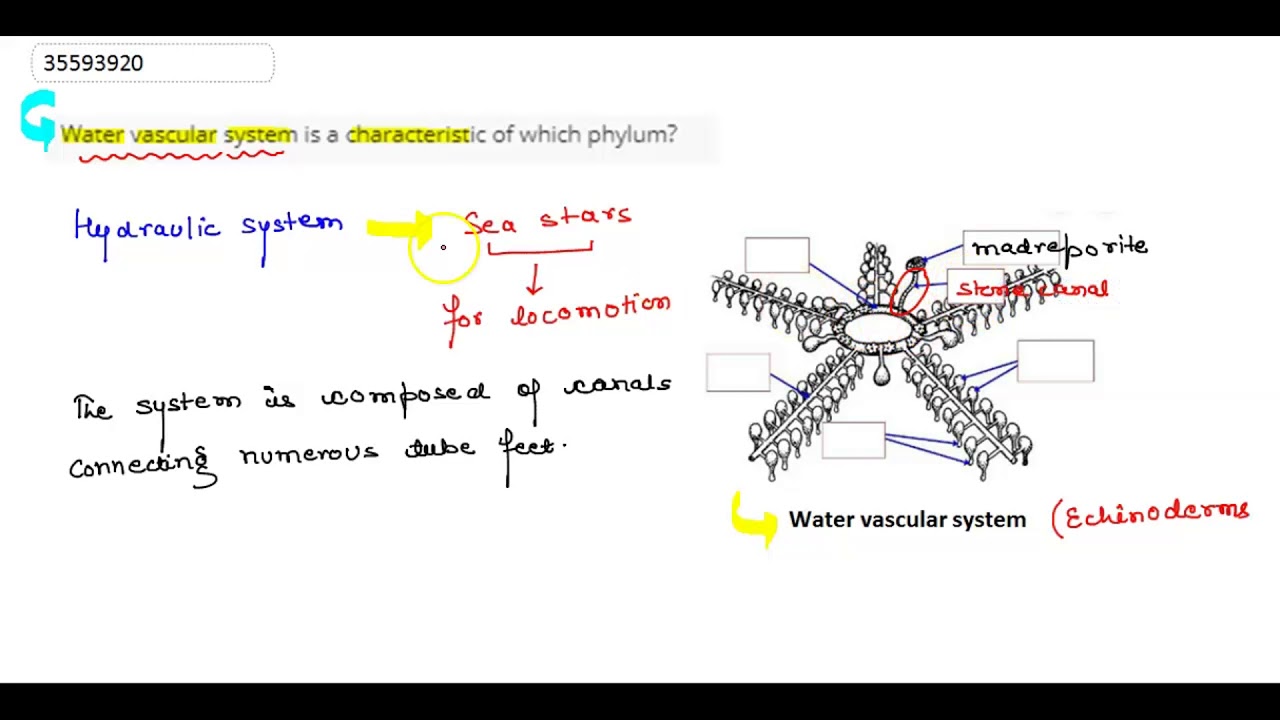 35593920
Water vascular system is a characteristic of which phylum?
Hydraulic system
Sea stars
for locomotion
The system is composed of canals
connecting numerous tube feet.
madreporite
stone canal
Water vascular system (Echinoderms